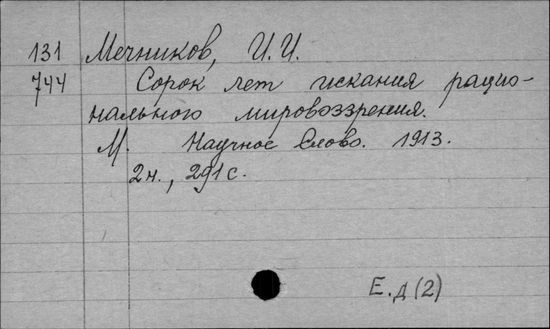 131 Мечников, И.И.
744 Сорок лет искания рацио-
нального мировоззрения.
М. Научное Слово. 1913.
2н., 291 с.
Е.д (2)